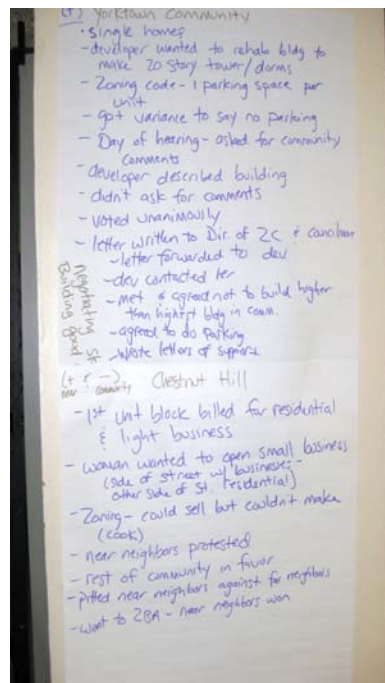 (+) Yorktown Community
• single homes
- developer wanted to rehab bldg to
make 20 story tower/dorms
- Zoning code - 1 parking space per
unit
- got variance to say no parking
- Day of hearing - asked for community
comments
- developer described building
- didn't ask for comments
- voted unanimously
- letter written to Dir. of ZC &
- letter forwarded to dev
- dev contacted her
- met & agreed not to build higher
than highest bldg in comm.
- agreed to do parking
- wrote letters of support
Negotiating St
Building good
(+ & -) Chestnut Hill
near community
- 1st unit block billed for residential
& light business
- woman wanted to open small business
(side of street w/ businesses -
other side of st. residential)
- Zoning - could sell but couldn't make
(cook)
- near neighbors protested
- rest of community in favor
- pitted near neighbors against far neighbors
- went to ZBA - near neighbors won